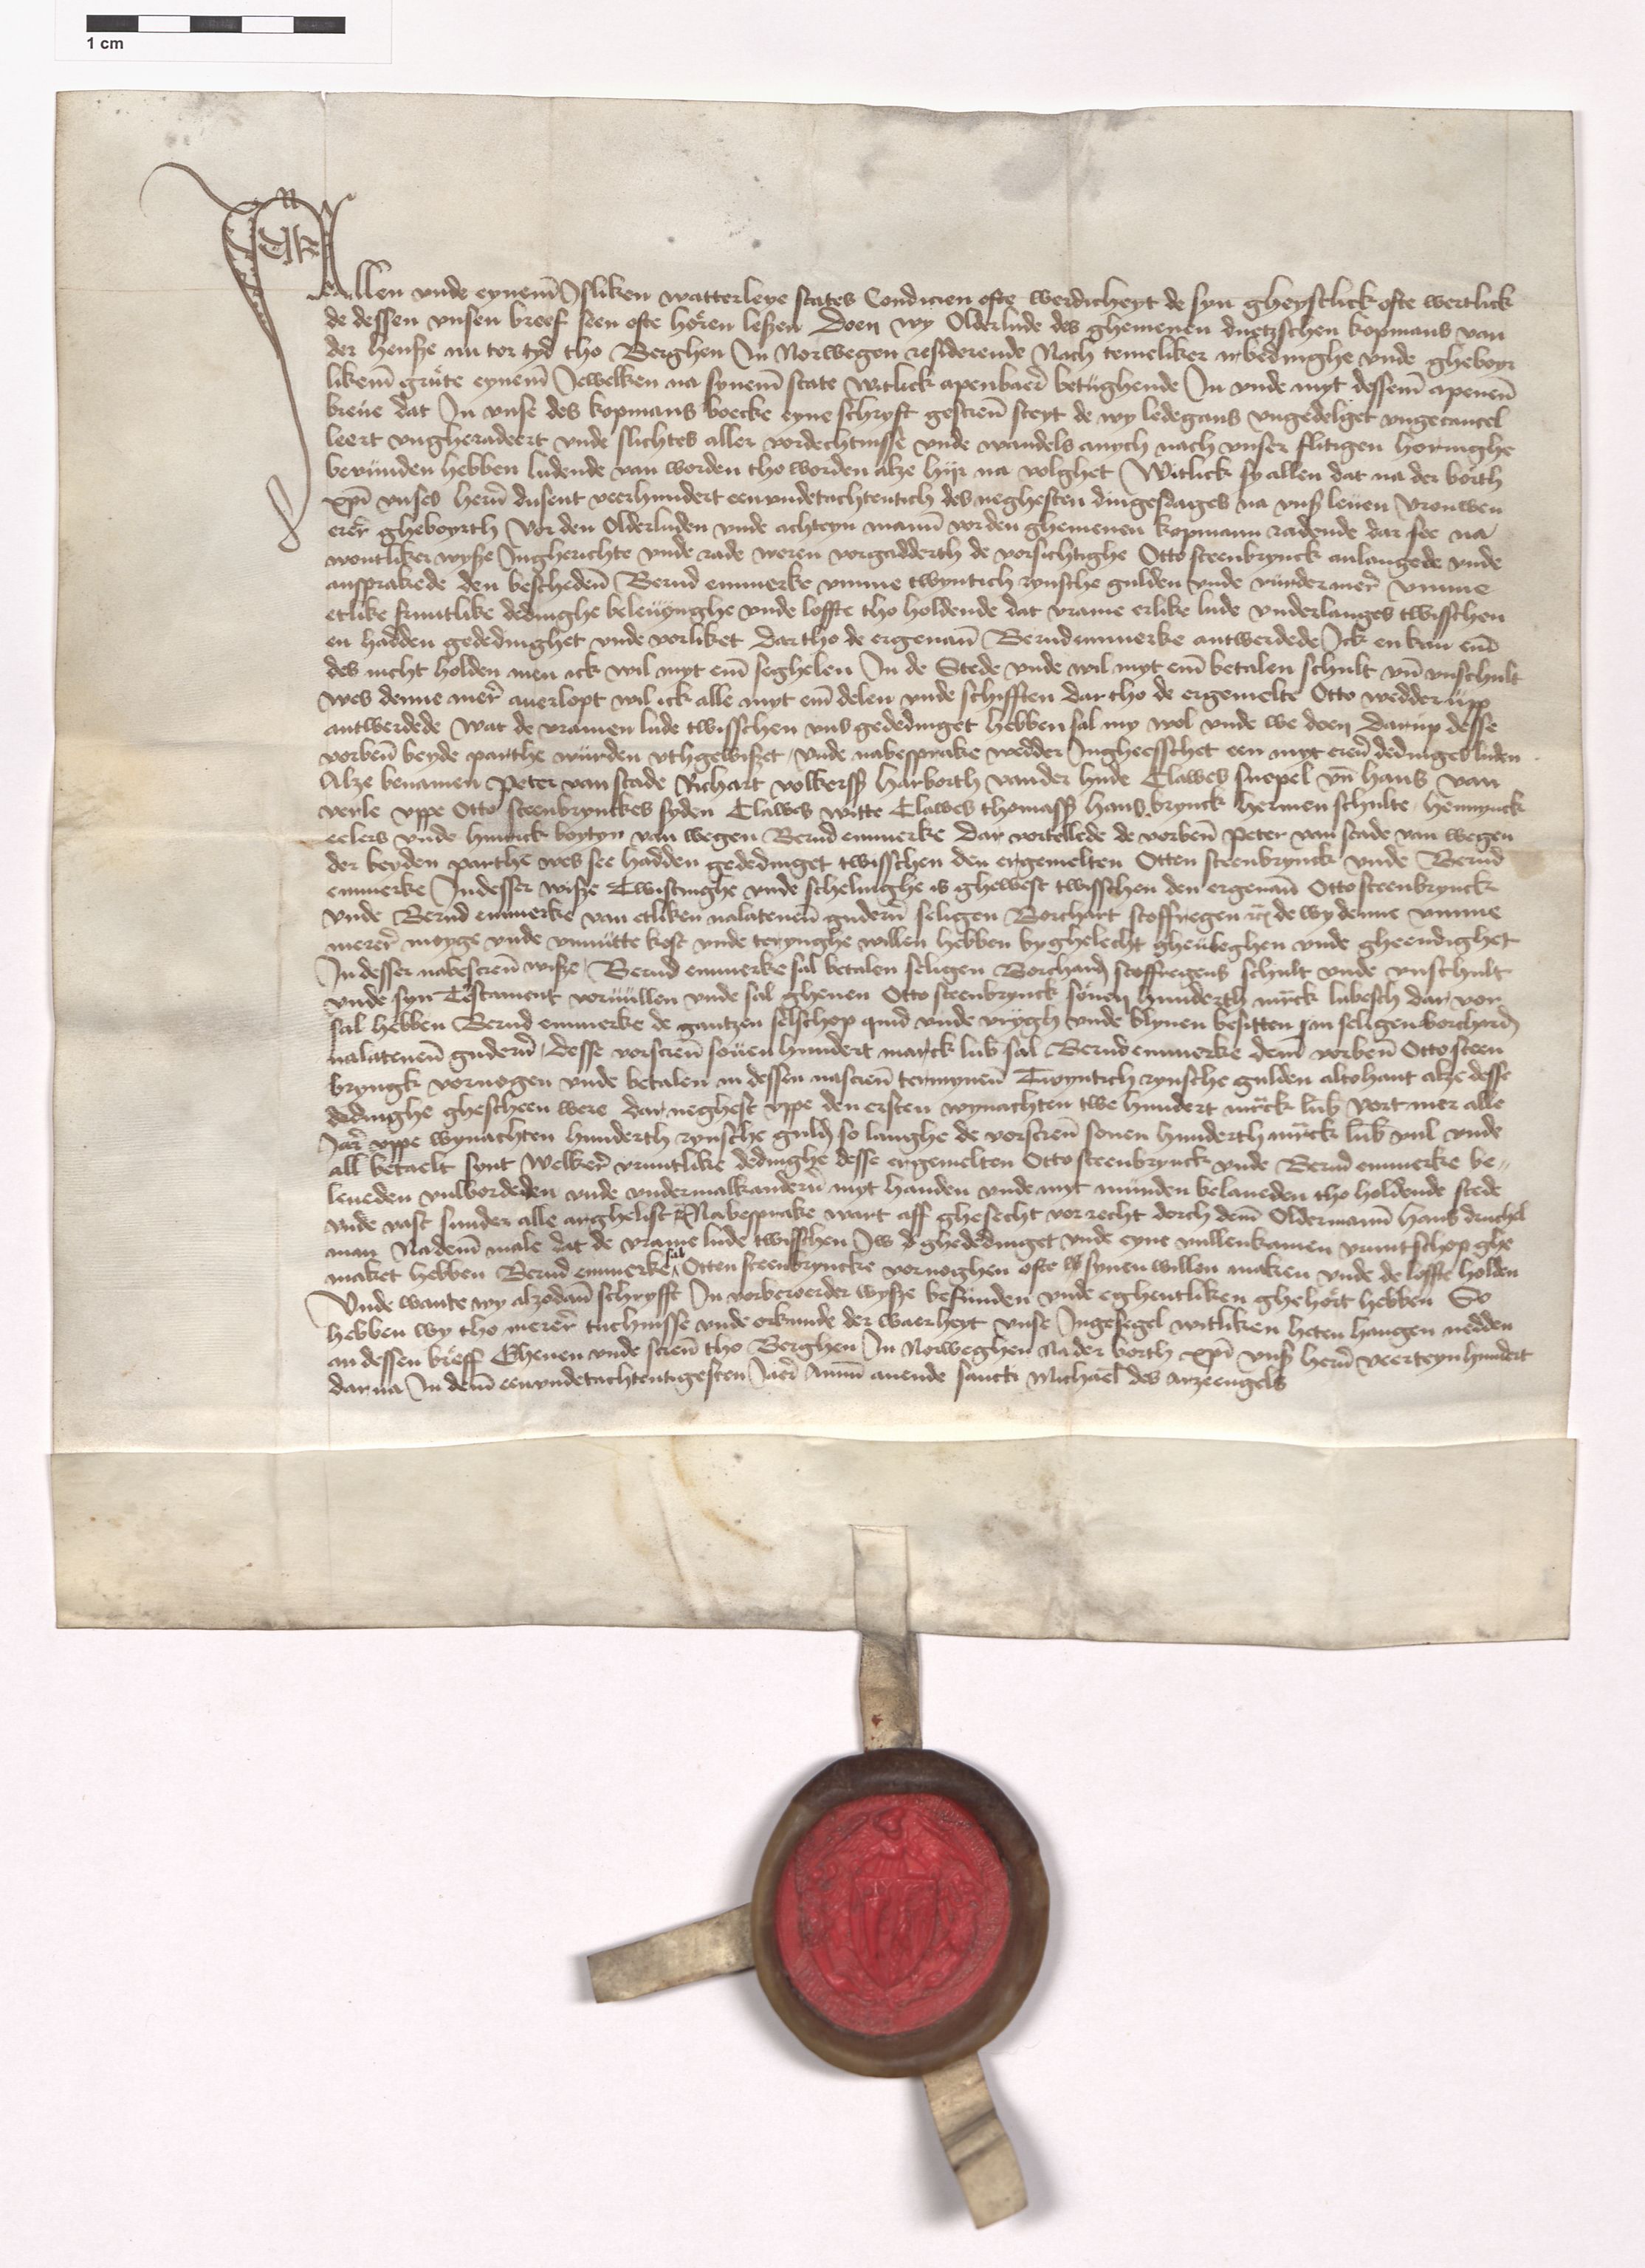 1 cm
Allen vnde eynem Jsliken watterleye states Condicien ofte werdicheyt de syn gheystlick ofte wertlick
de dessen vnsen breef seen ofte horen leszen Doen wy Olderlude des ghemenen duetzschen kopmans van
der hensze nu tor tyd tho Berghen Jn Norwegen residerende Nach temeliker irbedinghe vnde gheboyr
likem grute eynem Jewelken na synem state witlick apenbaer betughende Jn vnde myt dessem apenen
breue dat Jn vnse des kopmans boecke eyne schryft gescreu steyt de wy ledegans vngedelget vngecancel
leert vngheradeert vnde slichtes aller vordechtnisse vnde wandels anych nach vnser flitigen horinghe
bevunden hebben ludende van worden tho worden alze hyr na volghet Witlick sy allen dat na der borth
xpi vnses hern dusent veerhundert eenvndetachtentich des neghesten dingesdages na vnser leuen vrouwen
erer gheboyrth Vor den Olderluden vnde achteyn mann vor den ghemenen kopmann radende dar see na
wontliker wysze Jngherichte vnde rade weren vorgadderth de vorsichtighe Otto steenbrynck anlangede vnde
ansprakede den bescheden Bernd emmerke vmme twyntich rynsche gulden vnde vurder mer vmme
etlike fruntlike dedinghe beleuynghe vnde loffte tho holdende dat vrame erlike lude vnderlanges twisschen
en hadden gededinghet vnde vorliket Dar tho de ergenan Bernd emmerke antwerdede Jck en kan em
des nicht holden men ick wil myt em seghelen Jn de Stede vnde wil myt em betalen schult vn vnschult
wes denne mer auerlopt wil ick alle myt em delen vnde schifften Dar tho de ergemelte Otto wedder upp
antwerdede Wat de vramen lude twisschen vns gededinget hebben sal my wol vnde we doen Darup desse
vorben beyde parthe wurden vthgewiszet vnde nabesprake wedder Jngheesschet een myt eren dedinges luden
Alze benamen Peter van stade Richart volkerss harborth vander lyde Clawes snepel vn hans van
verle vppe Otto steenbrynckes syden Clawes witte Clawes thomass hans brynck hermen schulte hennynck
eelers vnde hinrick boyton van wegen Bernd emmerke Dar vortellede de vorben Peter van stade van wegen
der beyden parthe wes see hadden gededinget twisschen den ergemelten Otten steenbrynck vnde Bernd
emmerke Jndesser wisze Twistinghe vnde schelinghe is ghewest twisschen den ergenan Otto steenbrynck
vnde Bernd emmerke van etliken nalatenen gudern seligen Borchart stoffregen de wy denne vmme
merer moyge vnde vnnutte kost vnde terynghe willen hebben byghelecht gheubeghen vnde gheendighet
Jn desser nabescreu wisze Bernd emmerke sal betalen seligen Borchard stoffregens schult vnde vnschult
vnde syn Testament voruullen vnde sal gheuen Otto steenbrynck souen hunderth mrck lubesch dar vor
sal hebben Bernd emmerke de gantzen selschop quid vnde vrygh vnde blyuen besitten jn seligen borchard
nalatenen gudern Desse vorscreu souen hundert marck lub sal Bernd emmerke dem vorben Otto steen
bryngk vornogen vnde betalen in dessen nascreu termynen Twyntich rynsche gulden altohant alze desse
dedinghe ghescheen were dar neghest vppe den ersten wynachten twe hundert mrck lub Vort mer alle
Jar vppe wynachten hunderth rynsche guld so langhe de vorscreu souen hunderth mrck lub vul vnde
all betaelt synt Welker vruntlike dedinghe desse ergemelten Otto steenbrynck vnde Bernd emmerke be„
leueden vulbordeden vnde vndermalkandern myt handen vnde myt munden belaueden tho holdende stede
vnde vast sunder alle arghelist Nabesprake wart aff ghesecht vor recht dorch dem Oldermann hans druchel
man Nadem male dat de vrame lude twisschen Jw d ghededinget vnde eyne vullenkamen vruntschop ghe
maket hebben Bernd emmerke sal Otten steenbryncke vornoghen ofte synen willen maken vnde de loffte holden
Vnde wante wy alzodan schryfft Jn vorberoerder wysze befunden vnde eighentliken ghehort hebben So
hebben wy tho merer tuchnisse vnde orkunde der waerheyt vnse Jngesegel witliken heten hangen nedden
an dessen breff Gheuen vnde screu tho Berghen Jn Norweghen Na der borth xpi vns hern veerteynhundert
dar na Jn dem eenvndetachtentigesten Jaer Amm auende sancti Michael des arzeengels